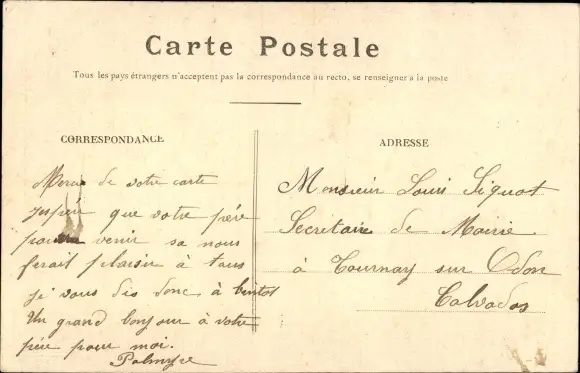 Carte Postale
Tous les pays étrangers n'acceptent pas la correspondance au recto, se renseigner a la poste
CORRESPONDANCE
Merci de votre carte
j'espère que votre père
pourra venir sa nous
ferait plaisir à tous
je vous dis donc à bentot
Un grand bonjour à votre
père pour moi.
Palmyre
ADRESSE
Monsieur Louis Siquot
Secretaire de Mairie
à Tournay sur Odon
Calvados